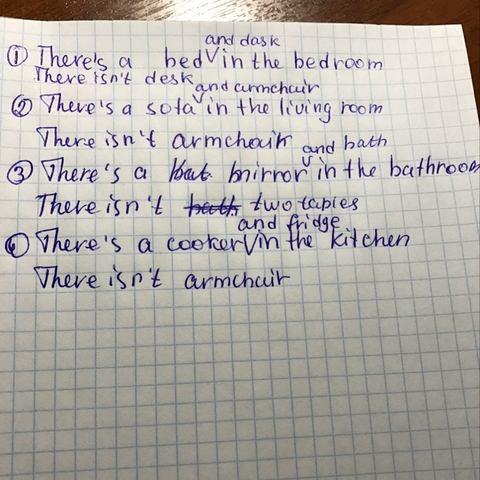 and dask
① There's a bed V in the bedroom
There isn't desk
and armchair
② There's a sofa V in the living room
There isn't armchair
and bath
③ There's a bat mirror V in the bathroom
There isn't bath two taples
and fridge
④ There's a cooker V in the kitchen
There isn't armchair